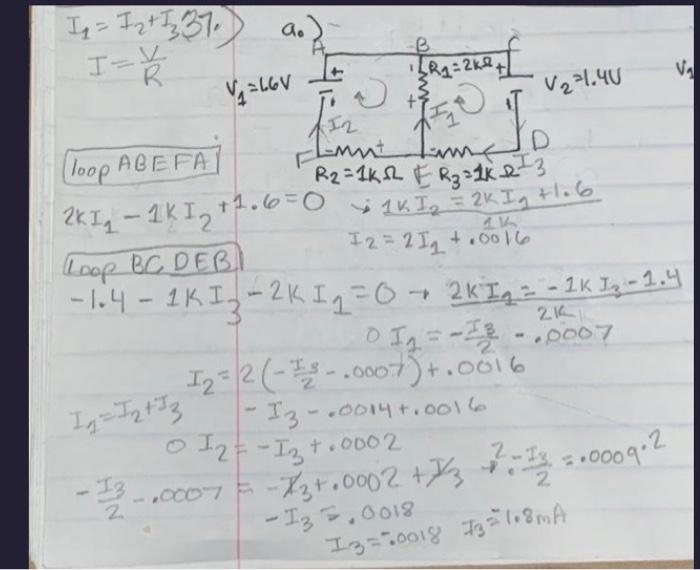 I₁ = I₂+I₃ 37.) a.)
I = V/R
A B C
+ R₁=2kΩ + V₂=1.4V V₁
V₁=1.6V
I₂ I₁
F - + E - D I₃
R₂=1kΩ R₃=1kΩ
loop ABEFA
2kI₁ - 1kI₂ + 1.6 = 0 → 1kI₂ = 2kI₁ + 1.6
1k
I₂ = 2I₁ + .0016
Loop BCDEB
-1.4 - 1kI₃ - 2kI₁ = 0 → 2kI₁ = -1kI₃ - 1.4
2k
I₁ = -I₃/2 - .0007
I₂ = 2(-I₃/2 - .0007) + .0016
I₁=I₂+I₃ - I₃ - .0014 + .0016
I₂ = -I₃ + .0002
-I₃/2 - .0007 = -I₃ + .0002 + I₃ → 2·-I₃/2 = .0009·2
-I₃ = .0018
I₃ = -.0018 I₃ = 1.8mA